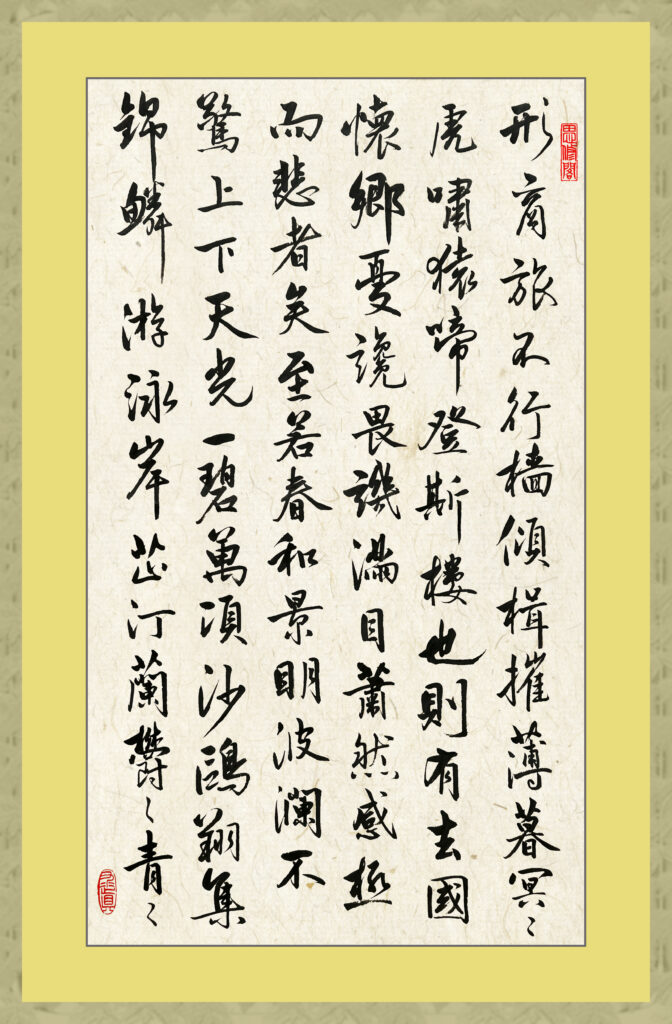 形商旅不行檣傾楫摧薄暮冥〻
虎嘯猿啼登斯樓也則有去國
懷鄉憂讒畏譏滿目蕭然感極
而悲者矣至若春和景明波瀾不
驚上下天光一碧萬頃沙鷗翔集
錦鱗游泳岸芷汀蘭鬱〻青〻